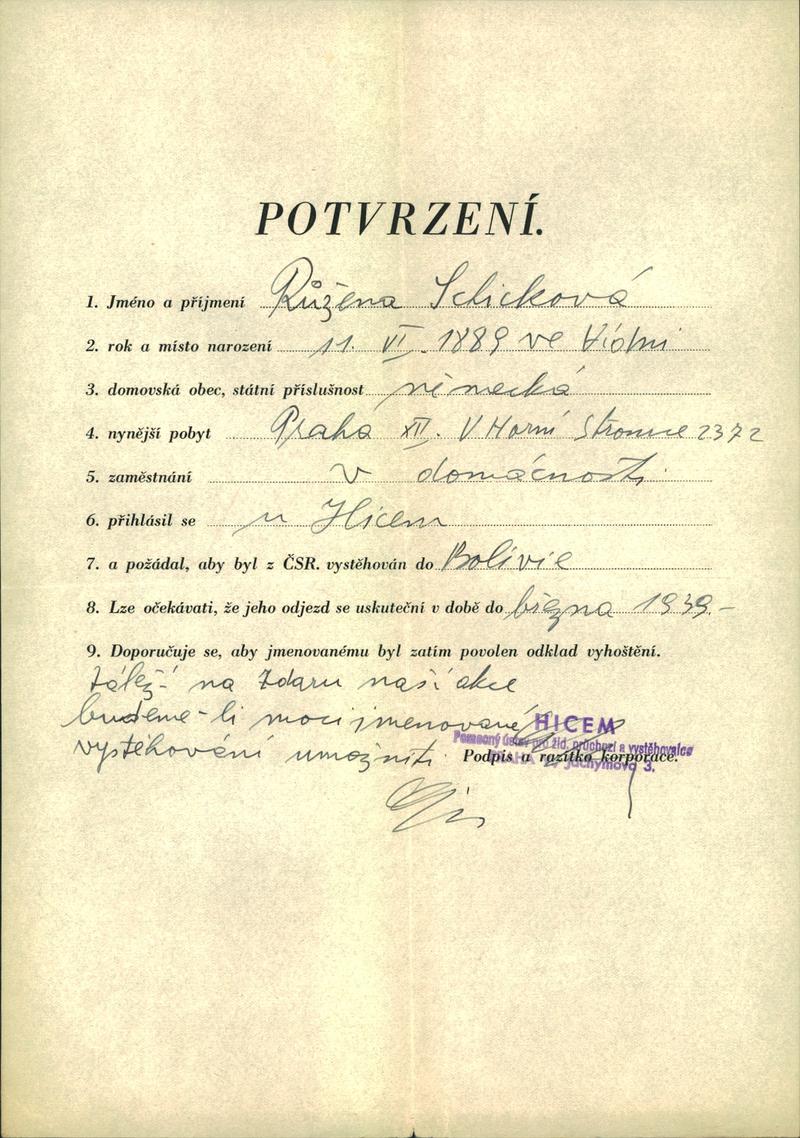 POTVRZENÍ.
1. Jméno a příjmení Růžena Schicková
2. rok a místo narození 11. VI. 1889 ve Vídni
3. domovská obec, státní příslušnost německá
4. nynější pobyt Praha XII. V Horní Stromce 2372
5. zaměstnání v domácnosti
6. přihlásil se u Hicem
7. a požádal, aby byl z ČSR. vystěhován do Bolivie
8. Lze očekávati, že jeho odjezd se uskuteční v době do března 1939.-
9. Doporučuje se, aby jmenovanému byl zatím povolen odklad vyhoštění.
záleží na zdaru naší akce
budeme-li moci jmenované
HICEM
Pomocný ústav pro žid. průchozí a vystěhovalce
vystěhování umožniti. Podpis a razítko korporace.
PRAHA Jáchymova 3.